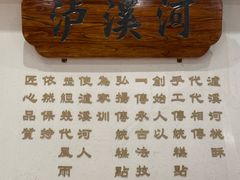 泸溪河
瀘溪河桃酥
代代相傳
手工傳統糕點
創始人以
一傳承古法技
弘揚傳統糕點
為家訓
使瀘溪河人
經幾代風雨
依然保持
匠心品質